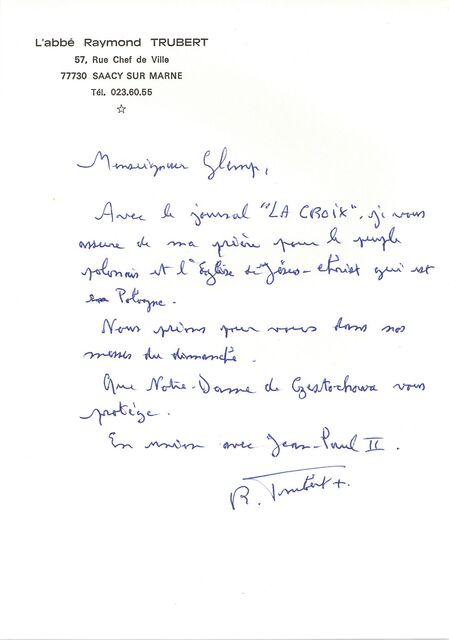 L'abbé Raymond TRUBERT
57, Rue Chef de Ville
77730 SAACY SUR MARNE
Tél. 023.60.55
Monseigneur Glemp,
Avec le journal "LA CROIX", je vous
assure de ma prière pour le peuple
polonais et l'Eglise de Jésus-Christ qui est
en Pologne.
Nous prions pour vous dans nos
messes du dimanche.
Que Notre-Dame de Czestochowa vous
protège.
En union avec Jean-Paul II.
R. Trubert +.